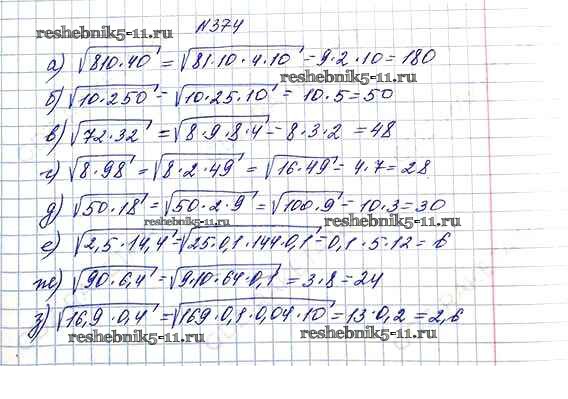 №374
reshebnik5-11.ru
а) √810·40 = √81·10·4·10 = 9·2·10 = 180
reshebnik5-11.ru
б) √10·250 = √10·25·10 = 10·5 = 50
в) √72·32 = √8·9·8·4 = 8·3·2 = 48
г) √8·98 = √8·2·49 = √16·49 = 4·7 = 28
д) √50·18 = √50·2·9 = √100·9 = 10·3 = 30
reshebnik5-11.ru reshebnik5-11.ru
е) √2,5·14,4 = √25·0,1·144·0,1 = 0,1·5·12 = 6
ж) √90·6,4 = √9·10·64·0,1 = 3·8 = 24
з) √16,9·0,4 = √169·0,1·0,04·10 = 13·0,2 = 2,6
reshebnik5-11.ru reshebnik5-11.ru